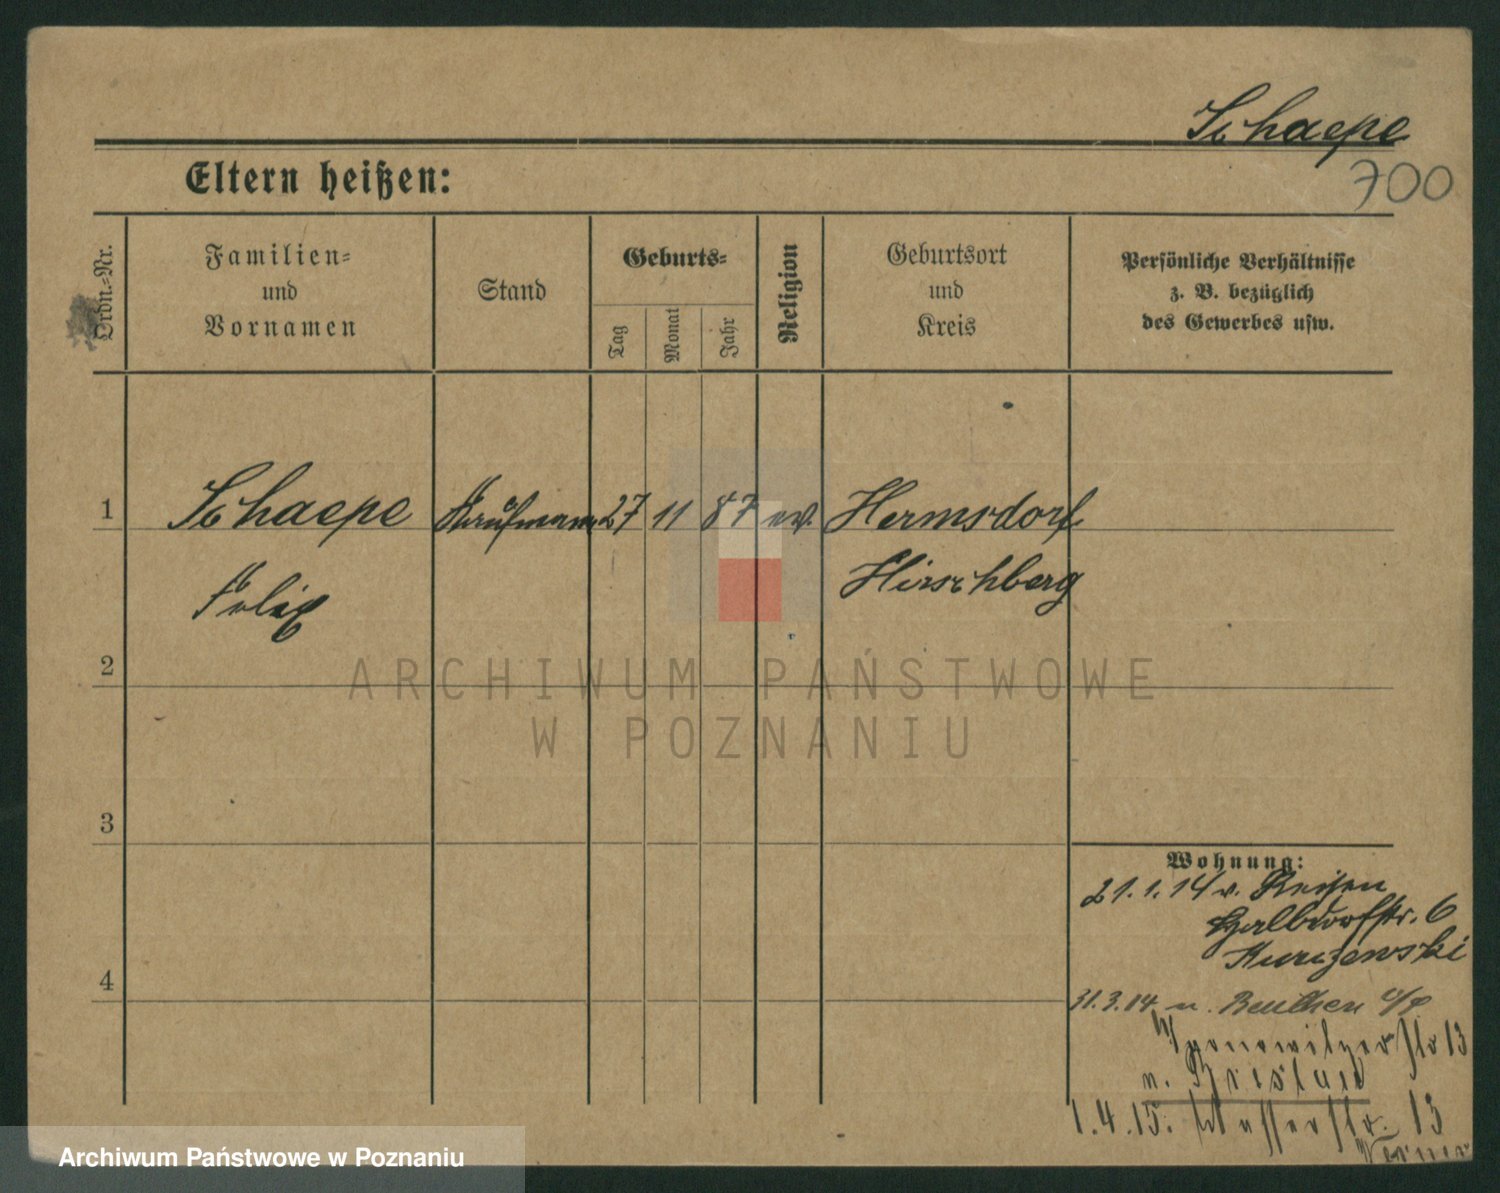 Schaepe
700
Eltern heißen:
Ordn.-Nr.
Familien-
und
Vornamen
Stand
Geburts-
Tag
Monat
Jahr
Religion
Geburtsort
und
Kreis
Persönliche Verhältnisse
z. B. bezüglich
des Gewerbes usw.
1
Schaepe
Kaufmann
27
11
87
ev.
Hermsdorf
Felix
Hirschberg
2
ARCHIWUM PAŃSTWOWE
W POZNANIU
3
Wohnung:
21.1.14 v. Reisen
Halbdorfstr. 6
4
31.3.14 n. Beuthen
13
n. Breslau
1.4.15. 13
Werner
Archiwum Państwowe w Poznaniu